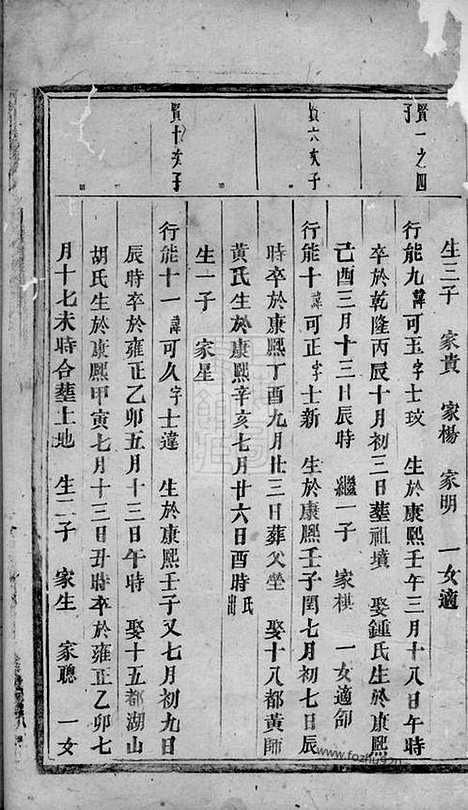 生三子 家貴 家楊 家明 一女適
賢一之四子
行能九諱可玉字士玟 生於康熙壬午三月十八日午時
卒於乾隆丙辰十月初三日塟祖墳 娶鍾氏生於康熙
己酉三月十三日辰時 繼一子 家棋 一女適邹
賢六次子
行能十諱可正字士新 生於康熙壬子閏七月初七日辰
時卒於康熙丁酉九月廿三日葬父坐 娶十八都黃師
黃氏生於康熙辛亥七月廿六日酉時出氏
生一子 家星
賢十次子
行能十一諱可久字士達 生於康熙壬子又七月初九日
辰時卒於雍正乙卯五月十三日午時 娶十五都湖山
胡氏生於康熙甲寅七月十三日丑時卒於雍正乙卯七
月十七未時合塟土地 生二子 家生 家聰 一女
www.fozhu920.com